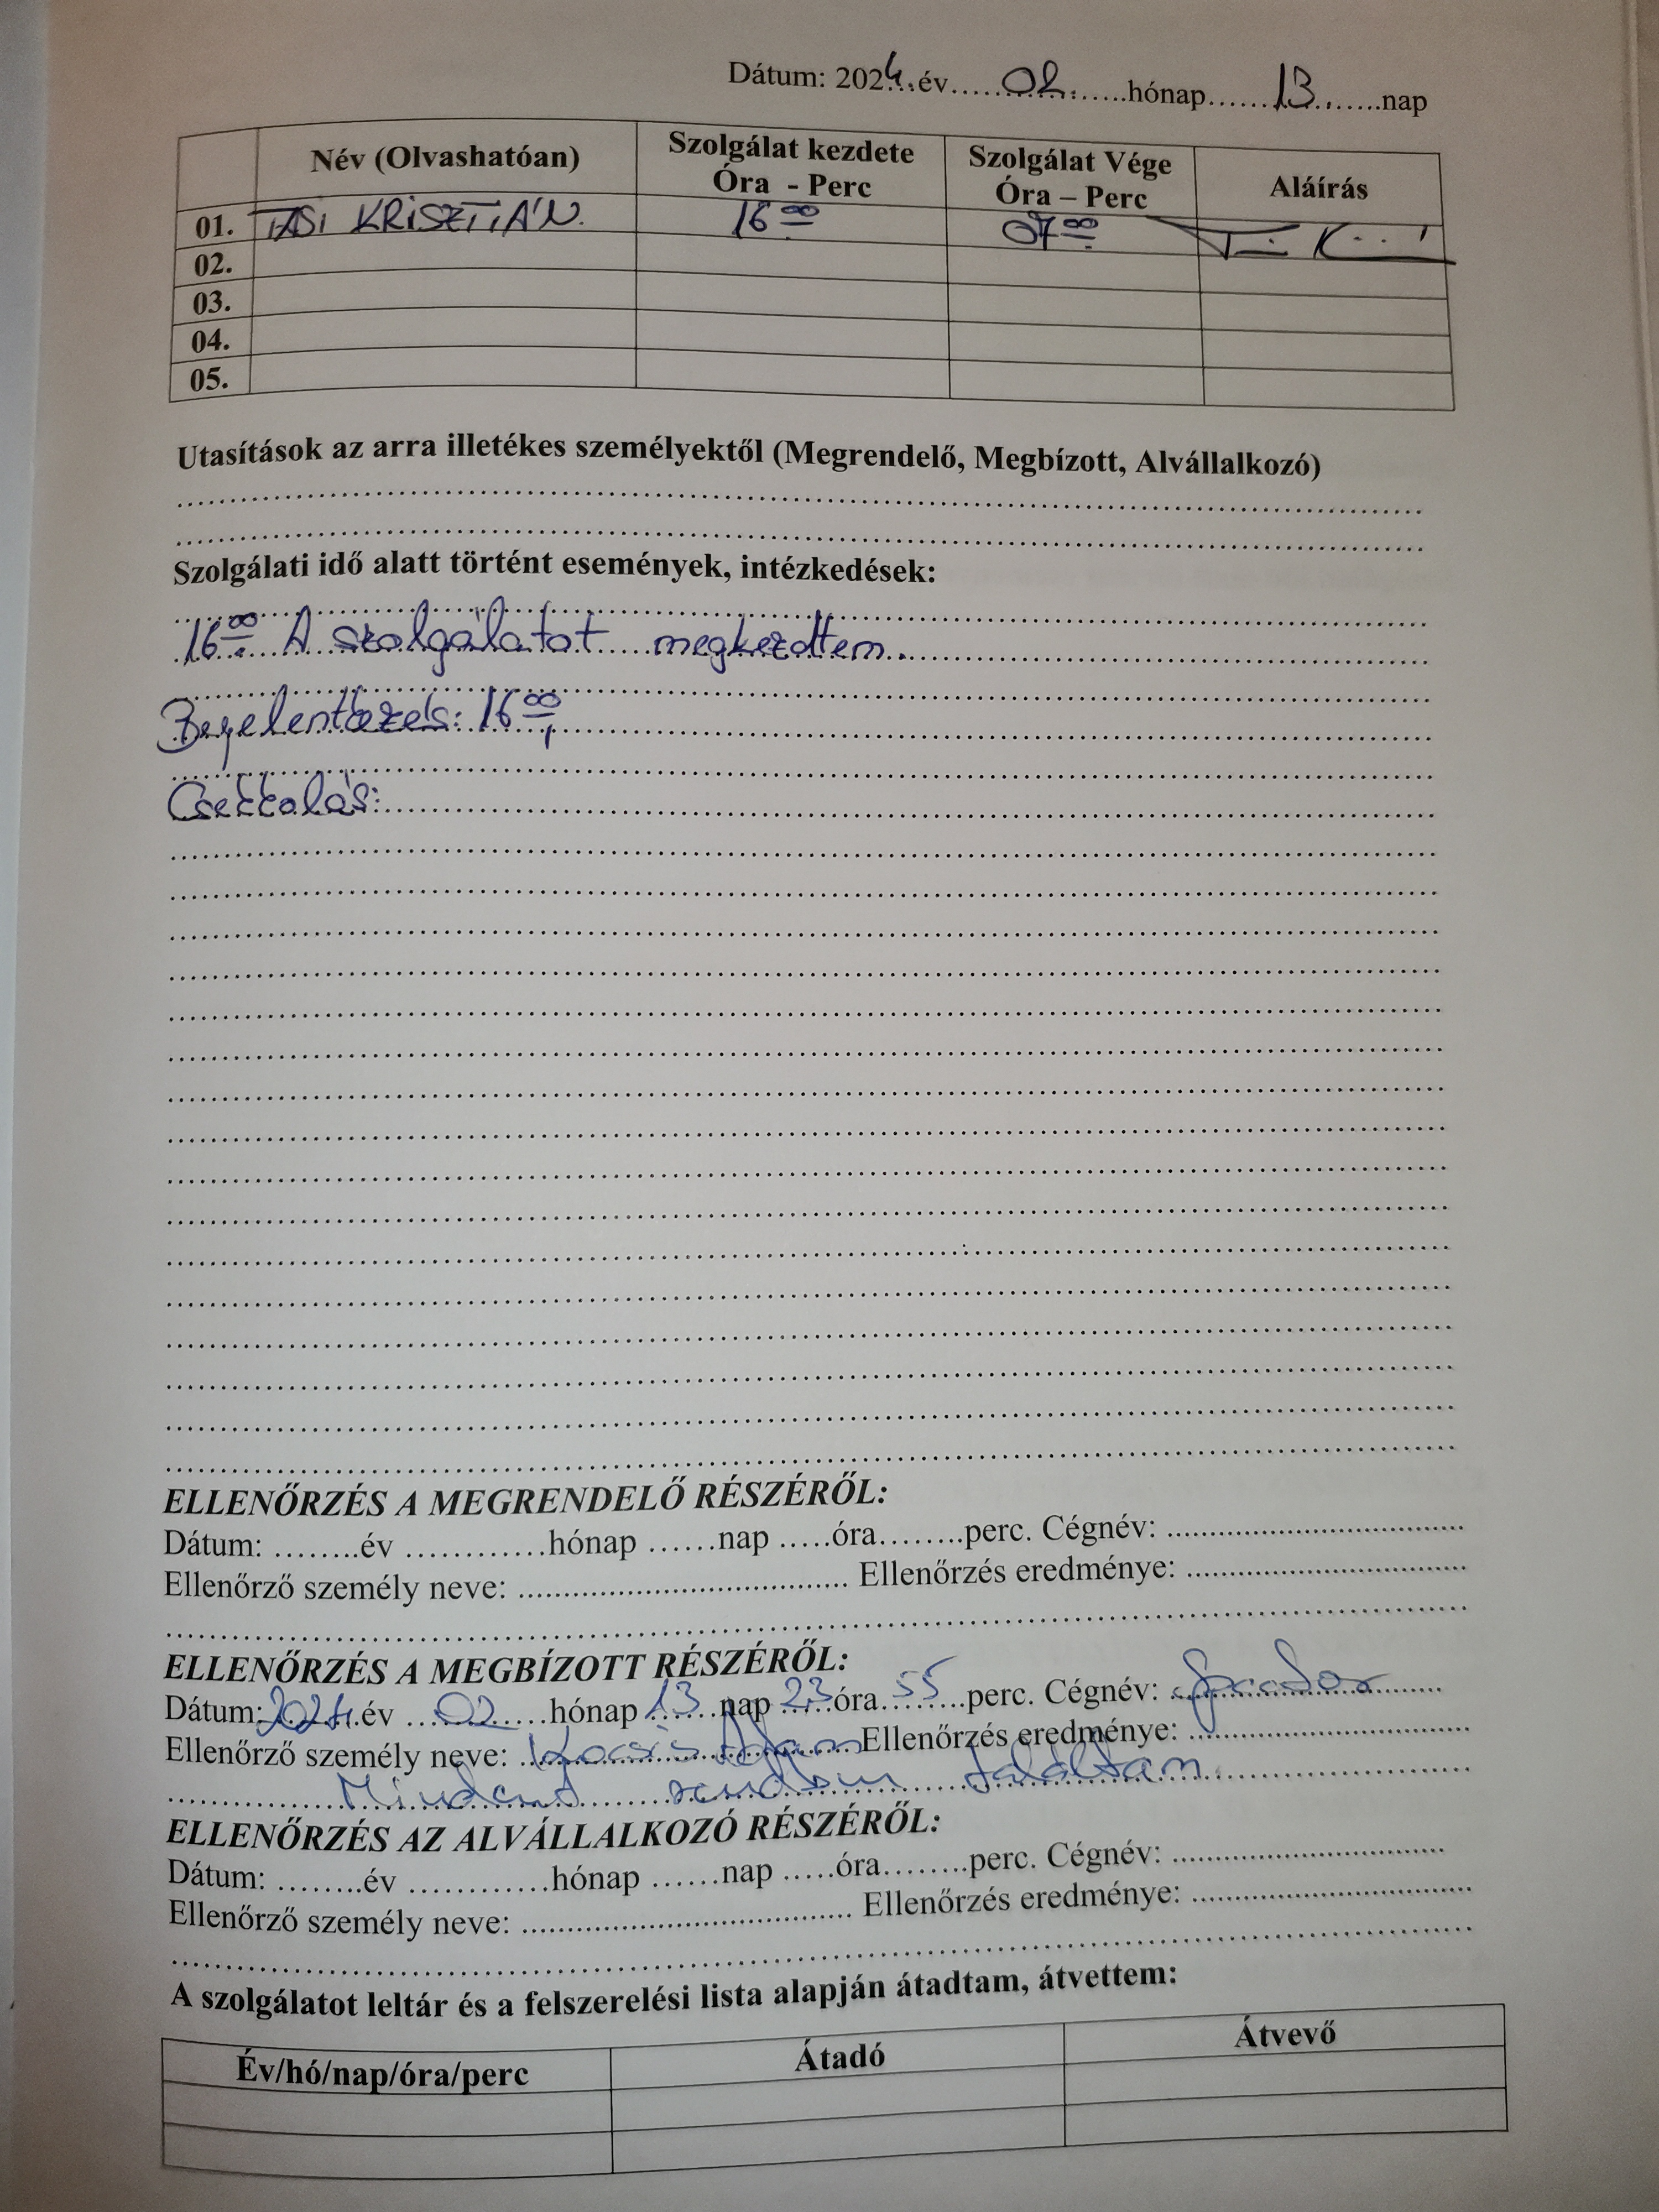 Dátum: 2024.év..........02..........hónap......13........nap
Név (Olvashatóan) Szolgálat kezdete Óra - Perc Szolgálat Vége Óra – Perc Aláírás
01. TASI KRISZTIÁN. 16 00 07 00
02.
03.
04.
05.
Utasítások az arra illetékes személyektől (Megrendelő, Megbízott, Alvállalkozó)
Szolgálati idő alatt történt események, intézkedések:
16 00 A szolgálatot megkezdtem.
Bejelentkezés: 16 00,
Csekkolás:
ELLENŐRZÉS A MEGRENDELŐ RÉSZÉRŐL:
Dátum: ........év .............hónap ......nap .....óra........perc. Cégnév: ..................................
Ellenőrző személy neve: ..................................... Ellenőrzés eredménye: ................................
ELLENŐRZÉS A MEGBÍZOTT RÉSZÉRŐL:
Dátum: 2024.év 02 hónap 13 nap 23 óra 55 perc. Cégnév:
Ellenőrző személy neve: Kocsis Ádám Ellenőrzés eredménye: ................................
Mindent rendben találtam
ELLENŐRZÉS AZ ALVÁLLALKOZÓ RÉSZÉRŐL:
Dátum: ........év .............hónap ......nap .....óra........perc. Cégnév: ...............................
Ellenőrző személy neve: ..................................... Ellenőrzés eredménye: ................................
A szolgálatot leltár és a felszerelési lista alapján átadtam, átvettem:
Év/hó/nap/óra/perc Átadó Átvevő